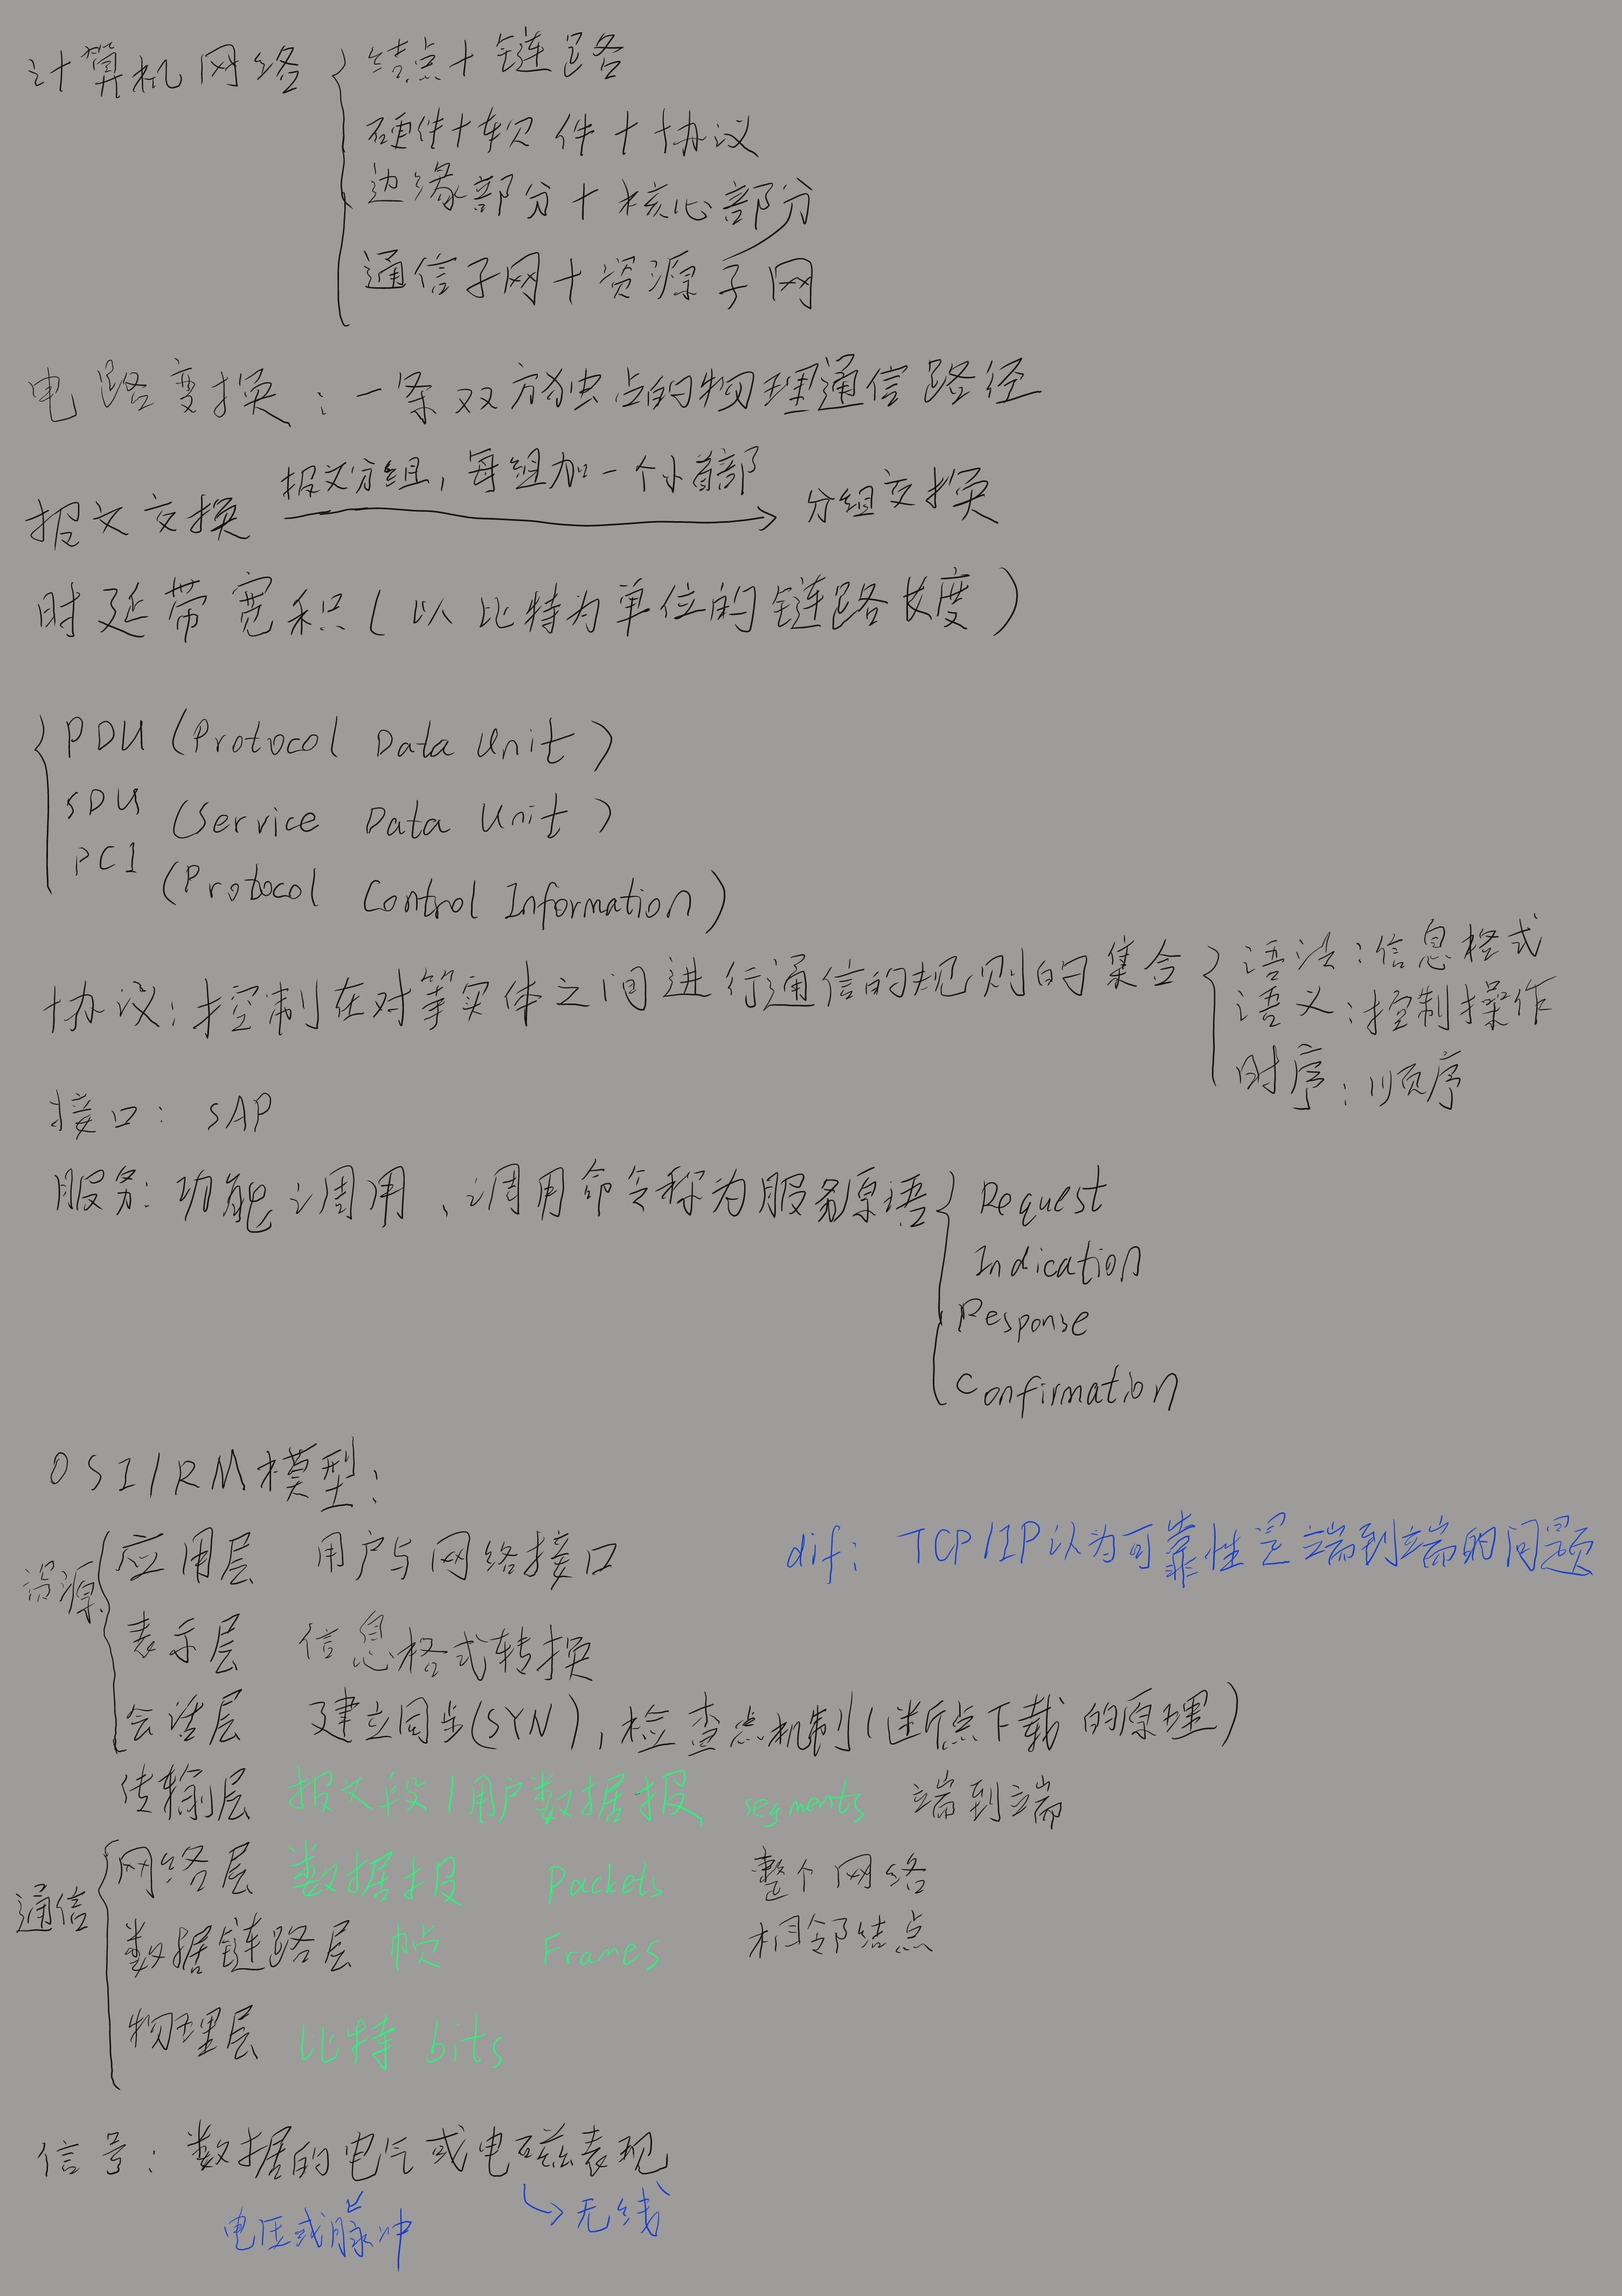 计算机网络 { 结点+链路
硬件+软件+协议
边缘部分+核心部分
通信子网+资源子网
电路变换:一条双方独占的物理通信路径
报文分组,每组加一个小首部
报文交换 → 分组交换
时延带宽积(以比特为单位的链路长度)
PDU (Protocol Data Unit)
SDU (Service Data Unit)
PCI (Protocol Control Information)
协议:控制在对等实体之间进行通信的规则的集合 { 语法:信息格式
语义:控制操作
时序:顺序
接口: SAP
服务:功能调用、调用命令称为服务原语 { Request
Indication
Response
Confirmation
OSI/RM模型:
资源 { 应用层 用户与网络接口 dif: TCP/IP以为可靠性是端到端的问题
表示层 信息格式转换
会话层 建立同步(SYN),检查点机制(断点下载的原理)
传输层 报文段/用户数据报 segments 端到端
通信 { 网络层 数据报 Packets 整个网络
数据链路层 帧 Frames 相邻结点
物理层 比特 bits
信号:数据的电气或电磁表现
电压或脉冲 → 无线